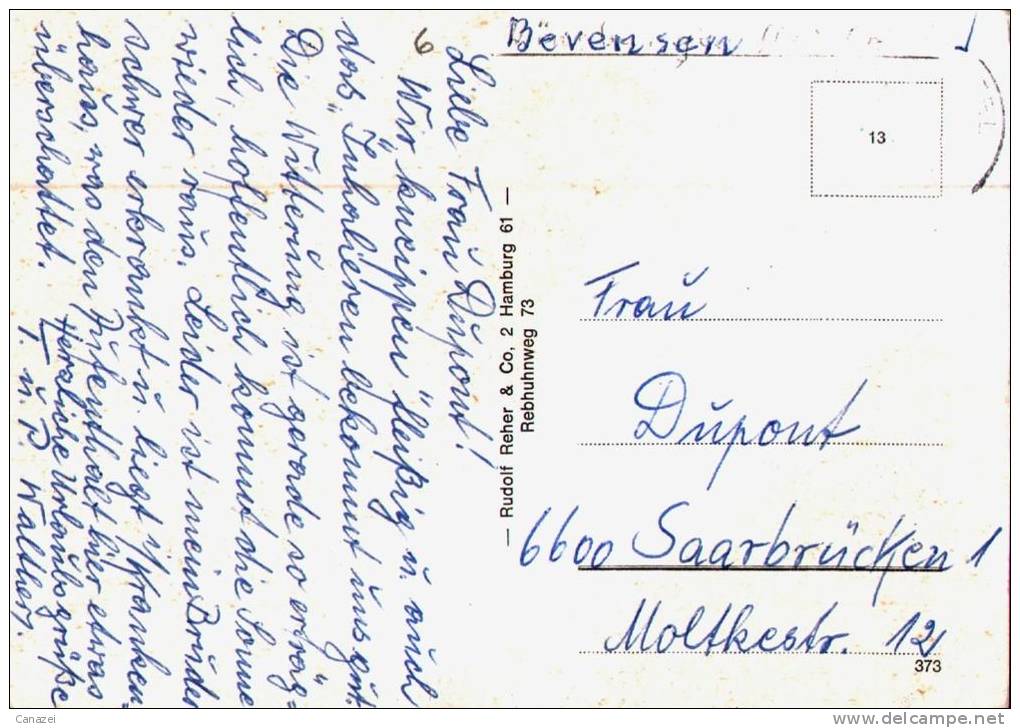 Bevensen
6
Liebe Frau Dupont!
Wir "kneippen" fleißig u. auch
das "Inhalieren" bekommt uns gut.
Die Witterung ist gerade so erträg=
lich, hoffentlich kommt die Sonne
wieder raus. Leider ist mein Bruder
schwer erkrankt u. liegt i/Kranken=
haus, was den Aufenthalt hier etwas
überschattet.
Herzliche Urlaubsgrüße
F. u. P. Walther.
— Rudolf Reher & Co, 2 Hamburg 61 —
Rebhuhnweg 73
13
Frau
Dupont
6600 Saarbrücken 1
Moltkestr. 12
373
Canazei
www.delcampe.net